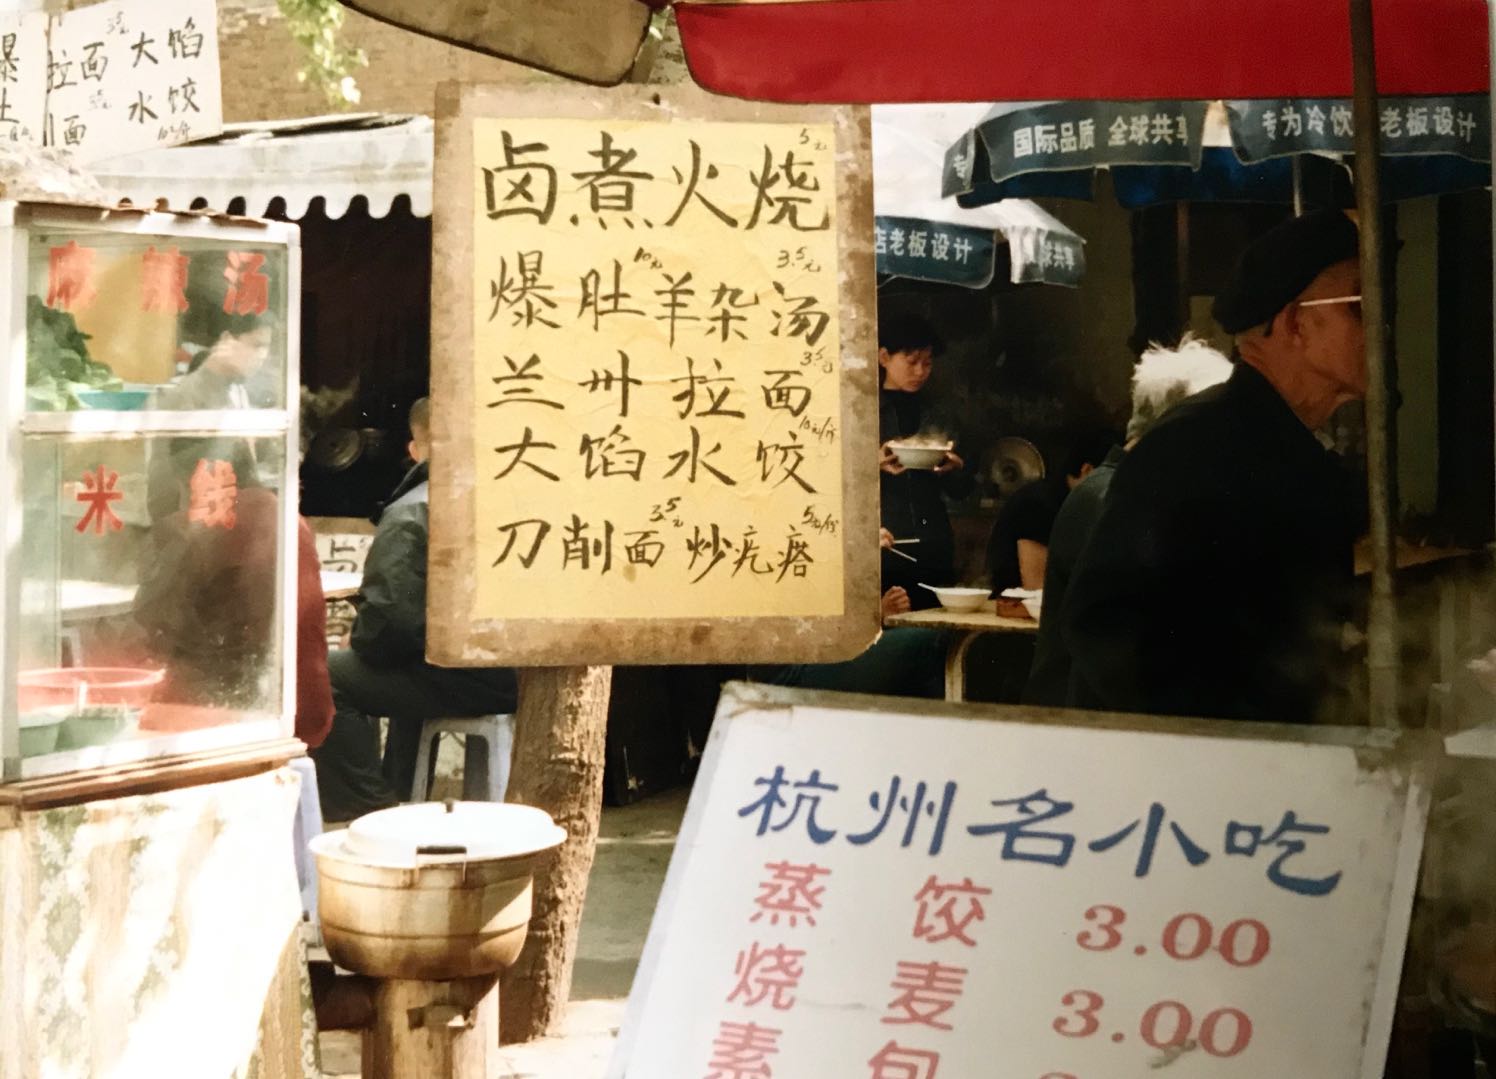 拉面 3.5元 大馅
面 水饺
麻辣汤
米线
卤煮火烧 5元
爆肚 10元 羊杂汤 3.5元
兰州拉面 3.5元
大馅水饺 10元/斤
刀削面 3.5元 炒疙瘩 5元/份
国际品质 全球共享
专为冷饮
老板设计
店老板设计
球共享
杭州名小吃
蒸饺 3.00
烧麦 3.00
素包